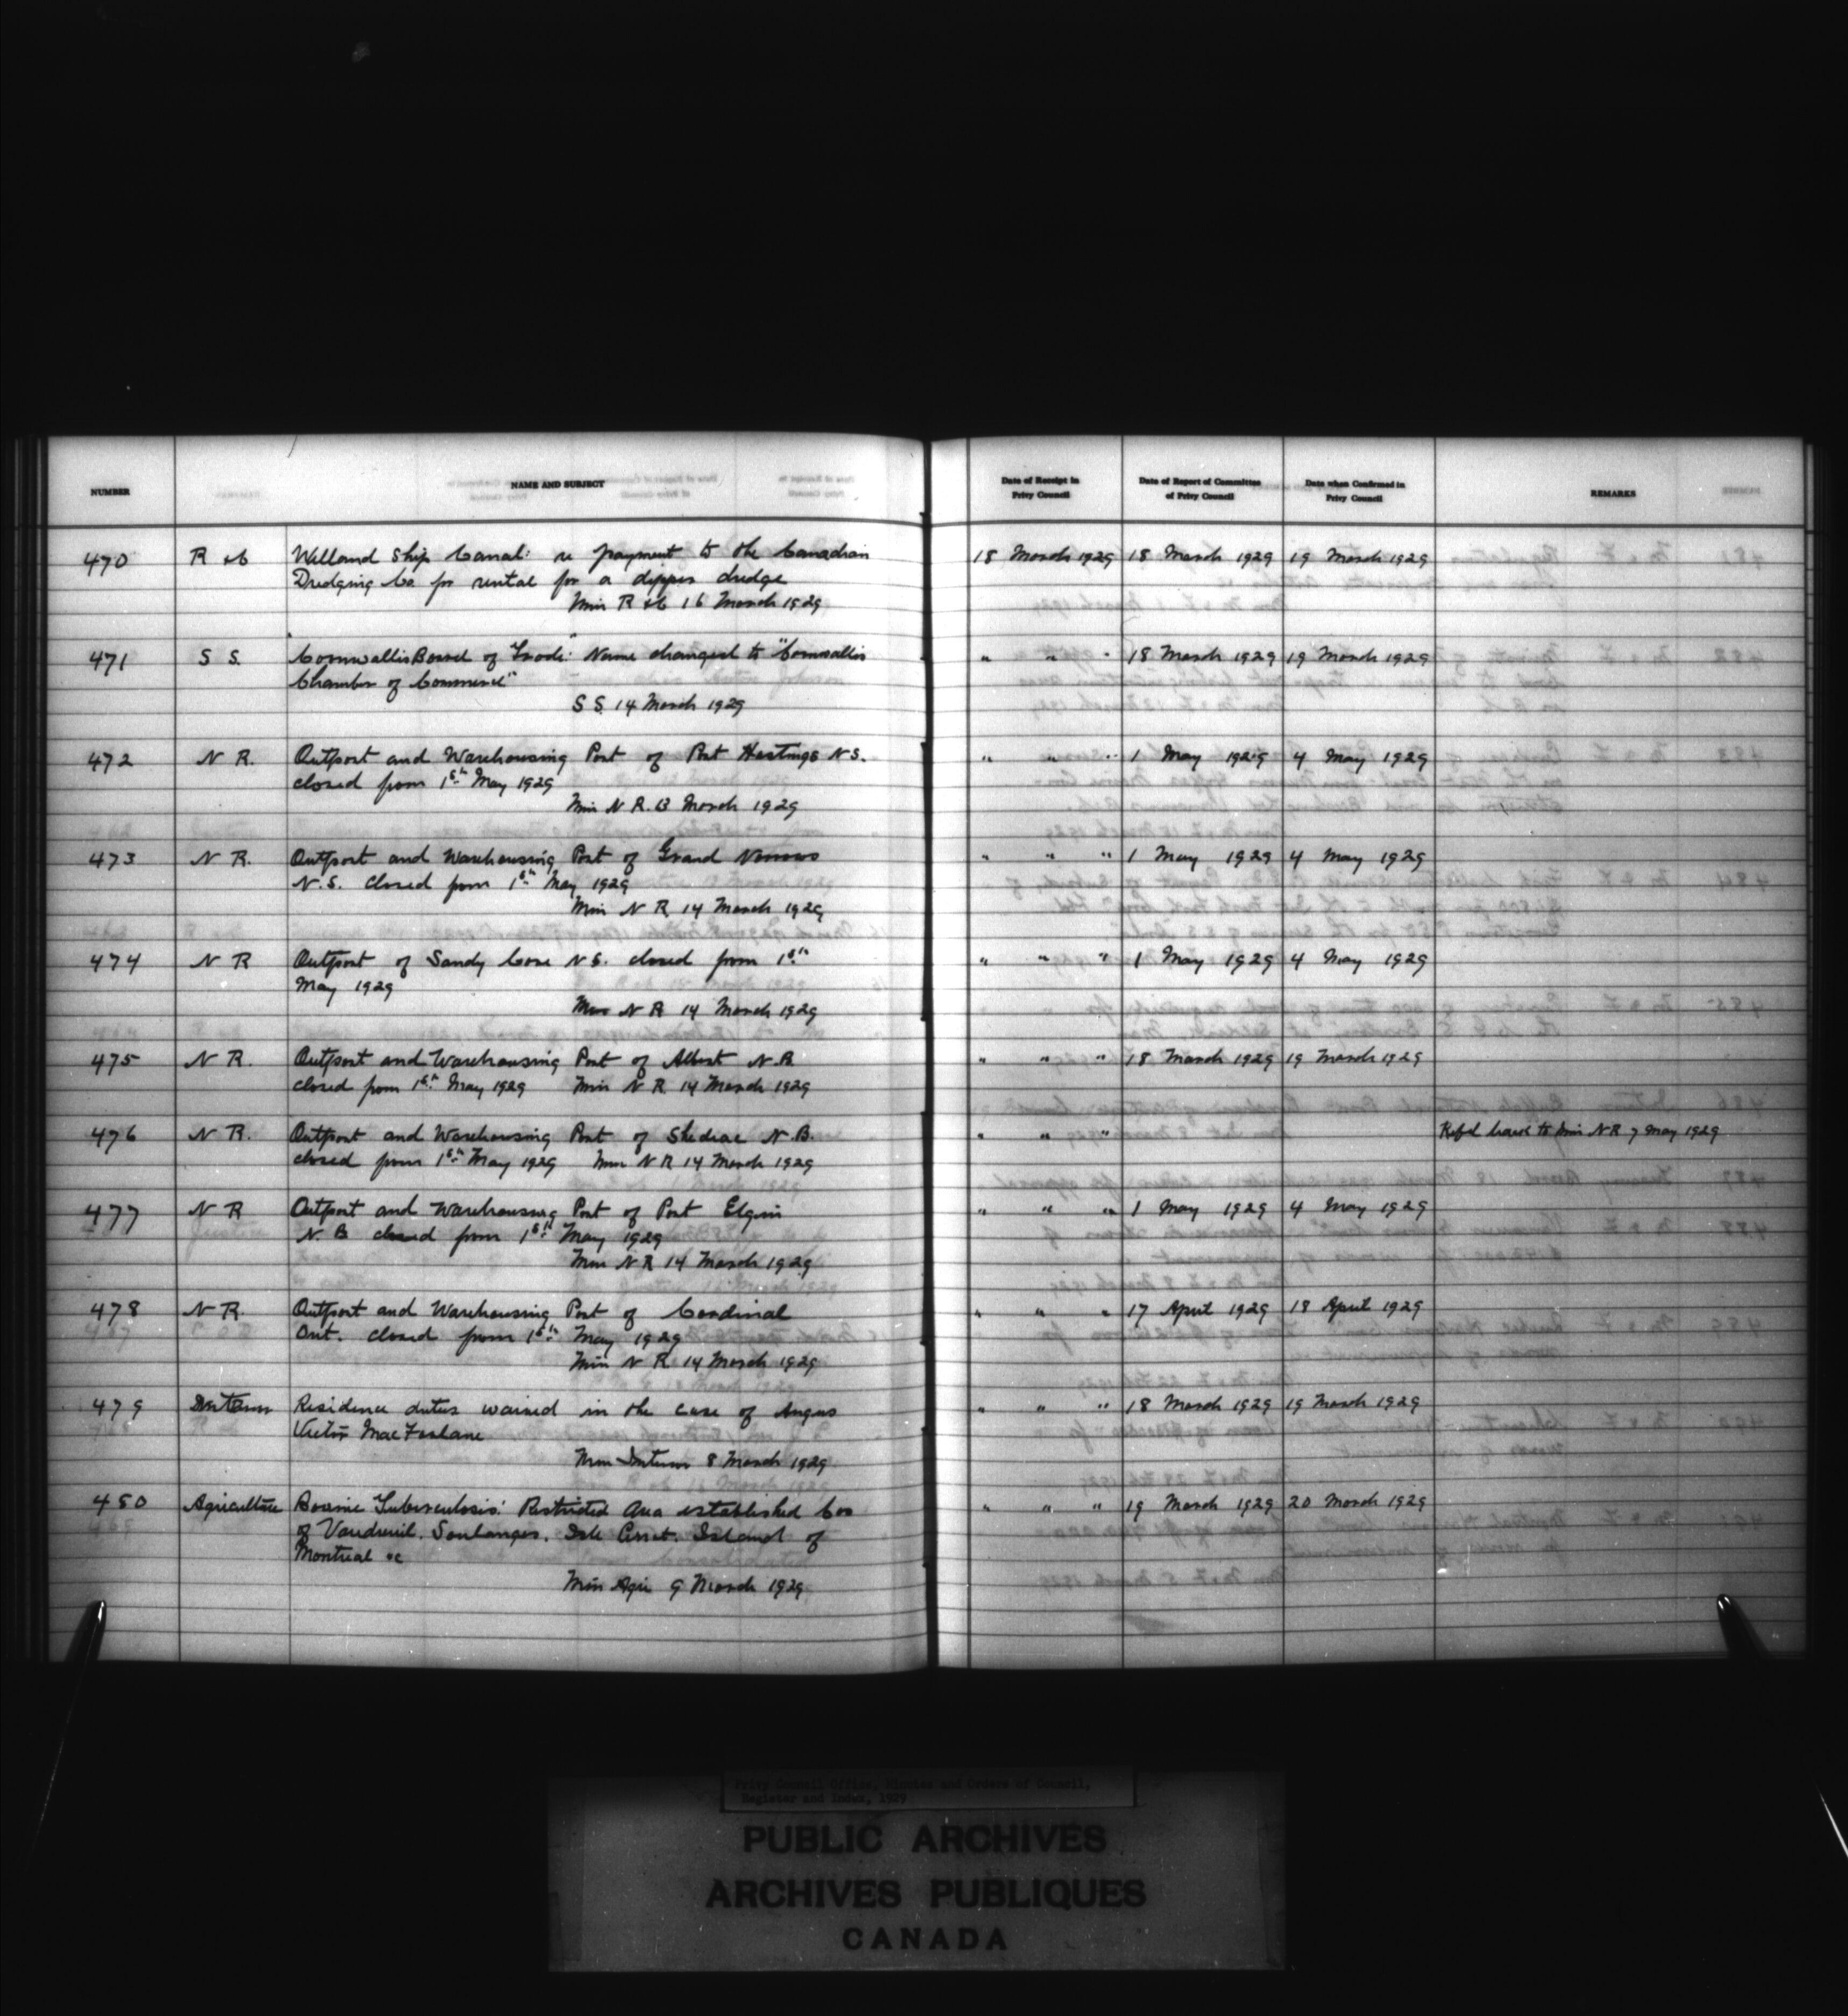 NUMBER
NAME AND SUBJECT
Date of Receipt in Privy Council
Date of Report of Committee of Privy Council
Date when Confirmed in Privy Council
REMARKS
470 R &C Welland Ship Canal: re payment to the Canadian 18 March 1929 18 March 1929 19 March 1929
Dredging Co for rental for a dipper dredge
Min R &C 16 March 1929
471 S S. "Cornwallis Board of Trade": Name changed to "Cornwallis " " " 18 March 1929 19 March 1929
Chamber of Commerce"
S S. 14 March 1929
472 N R. Outport and Warehousing Port of Port Hastings N S. " " " 1 May 1929 4 May 1929
closed from 1st May 1929
Min N R. 13 March 1929
473 N R. Outport and Warehousing Port of Grand Narrows " " " 1 May 1929 4 May 1929
N.S. closed from 1st May 1929
Min N R 14 March 1929
474 N R Outport of Sandy Cove N S. closed from 1st " " " 1 May 1929 4 May 1929
May 1929
Min N R 14 March 1929
475 N R. Outport and Warehousing Port of Albert N B " " " 18 March 1929 19 March 1929
closed from 1st May 1929 Min N R 14 March 1929
476 N R. Outport and Warehousing Port of Shediac N.B. " " " Refd back to Min N R 7 May 1929
closed from 1st May 1929 Min N R 14 March 1929
477 N R Outport and Warehousing Port of Port Elgin " " " 1 May 1929 4 May 1929
N B closed from 1st May 1929
Min N R 14 March 1929
478 N R. Outport and Warehousing Port of Cardinal " " " 17 April 1929 18 April 1929
Ont. closed from 1st May 1929
Min N R 14 March 1929
479 Interior Residence duties waived in the case of Angus " " " 18 March 1929 19 March 1929
Victor MacFarlane
Min Interior 8 March 1929
480 Agriculture Bovine Tuberculosis: Restricted Area established Cos " " " 19 March 1929 20 March 1929
of Vaudreuil. Soulanges. Isle Perrot. Island of
Montreal &c
Min Agri 9 March 1929
Privy Council Office, Minutes and Orders of Council,
Register and Index, 1929
PUBLIC ARCHIVES
ARCHIVES PUBLIQUES
CANADA